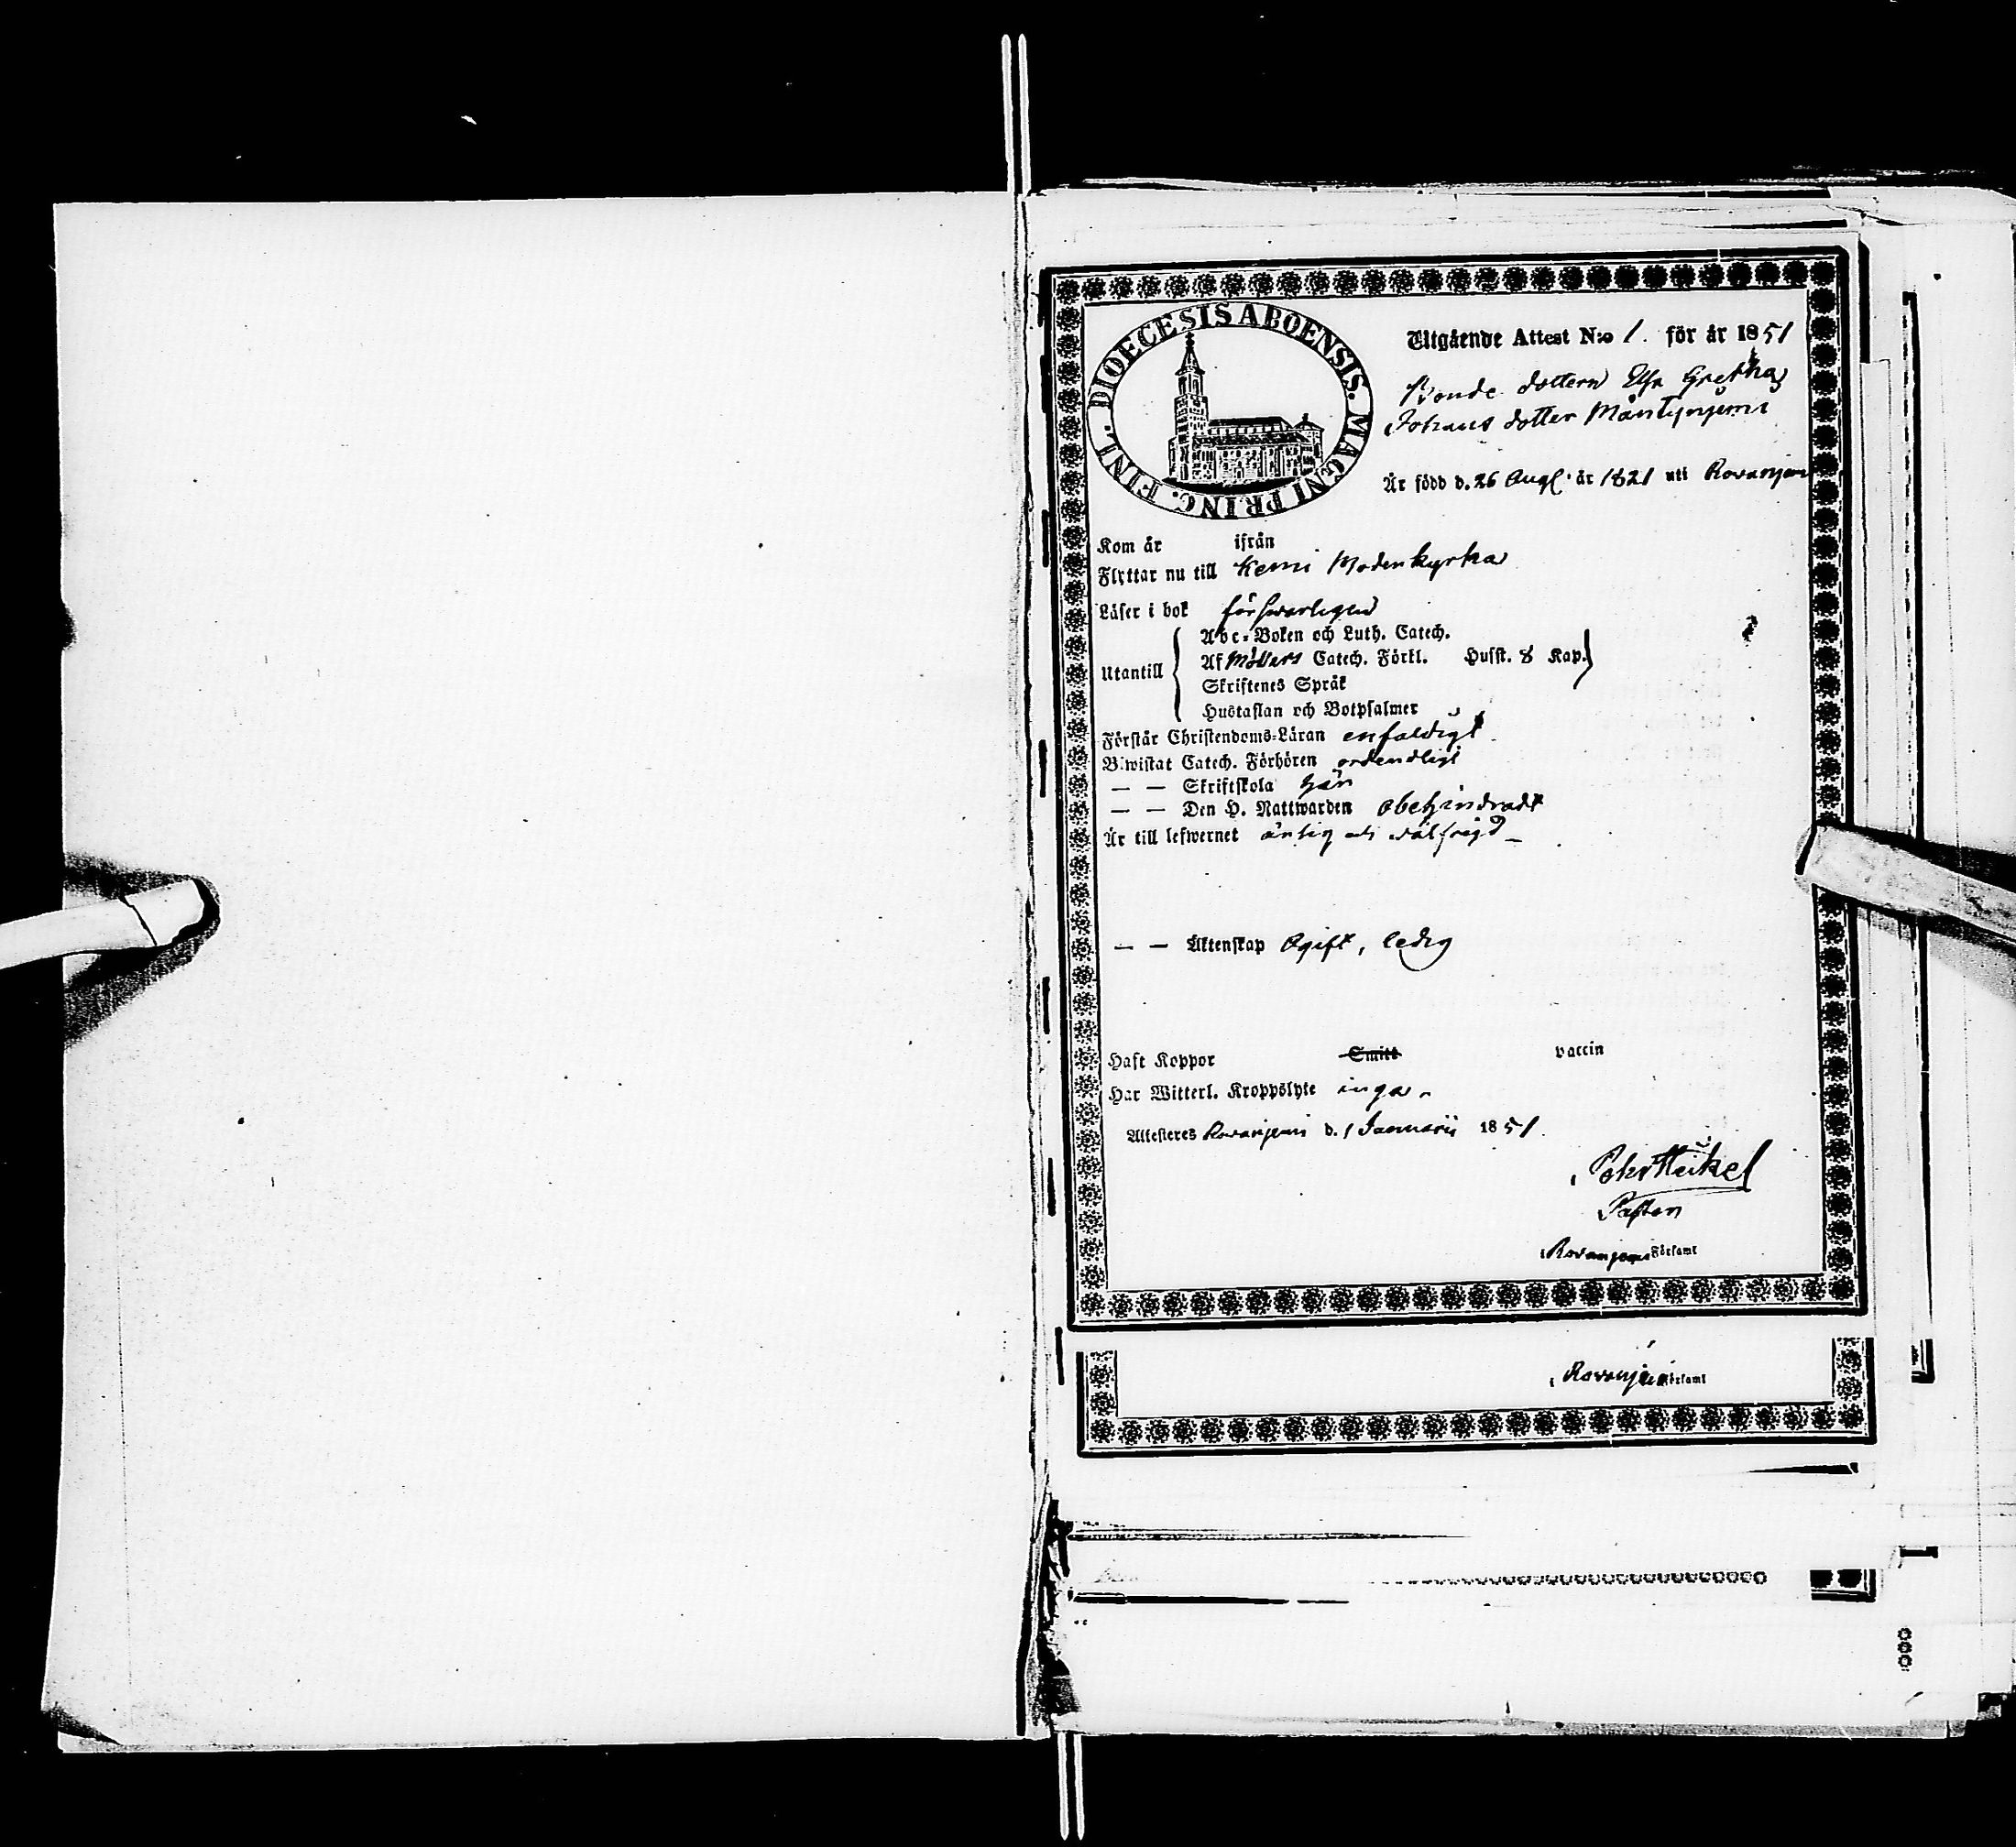 DIOECESIS ABOENSIS. MAGNI PRINC. FINL.
Utgående Attest N:o 1. för år 1851
Bonde dottern Elsa Gretha
Johans dotter Mäntyniemi
Är född d. 26 Aug. år 1821 uti Rovaniemi
Kom år ifrån
Flyttar nu till Kemi Moderkyrka
Läser i bok försvarligen
Utantill
Abc-Boken och Luth. Catech.
Af Möllers Catech. Förkl. Husst. 8 Kap.
Skriftenes Språk
Hustaflan och Botpsalmer
Förstår Christendoms-Läran enfaldigt
Bewistat Catech. Förhören ordendligt
— — Skriftskola här
— — Den H. Nattwarden obehindradt
Är till lefwernet ärlig och välfrägd —
— — Äktenskap Ogift, ledig
Haft Koppor Smitt vaccin
Har Witterl. Kroppslyte inga.
Attesteres Rovaniemi d. 1 Januarii 1851.
Heikel
Pastor
Rovaniemi Församl
Rovaniemi Församl